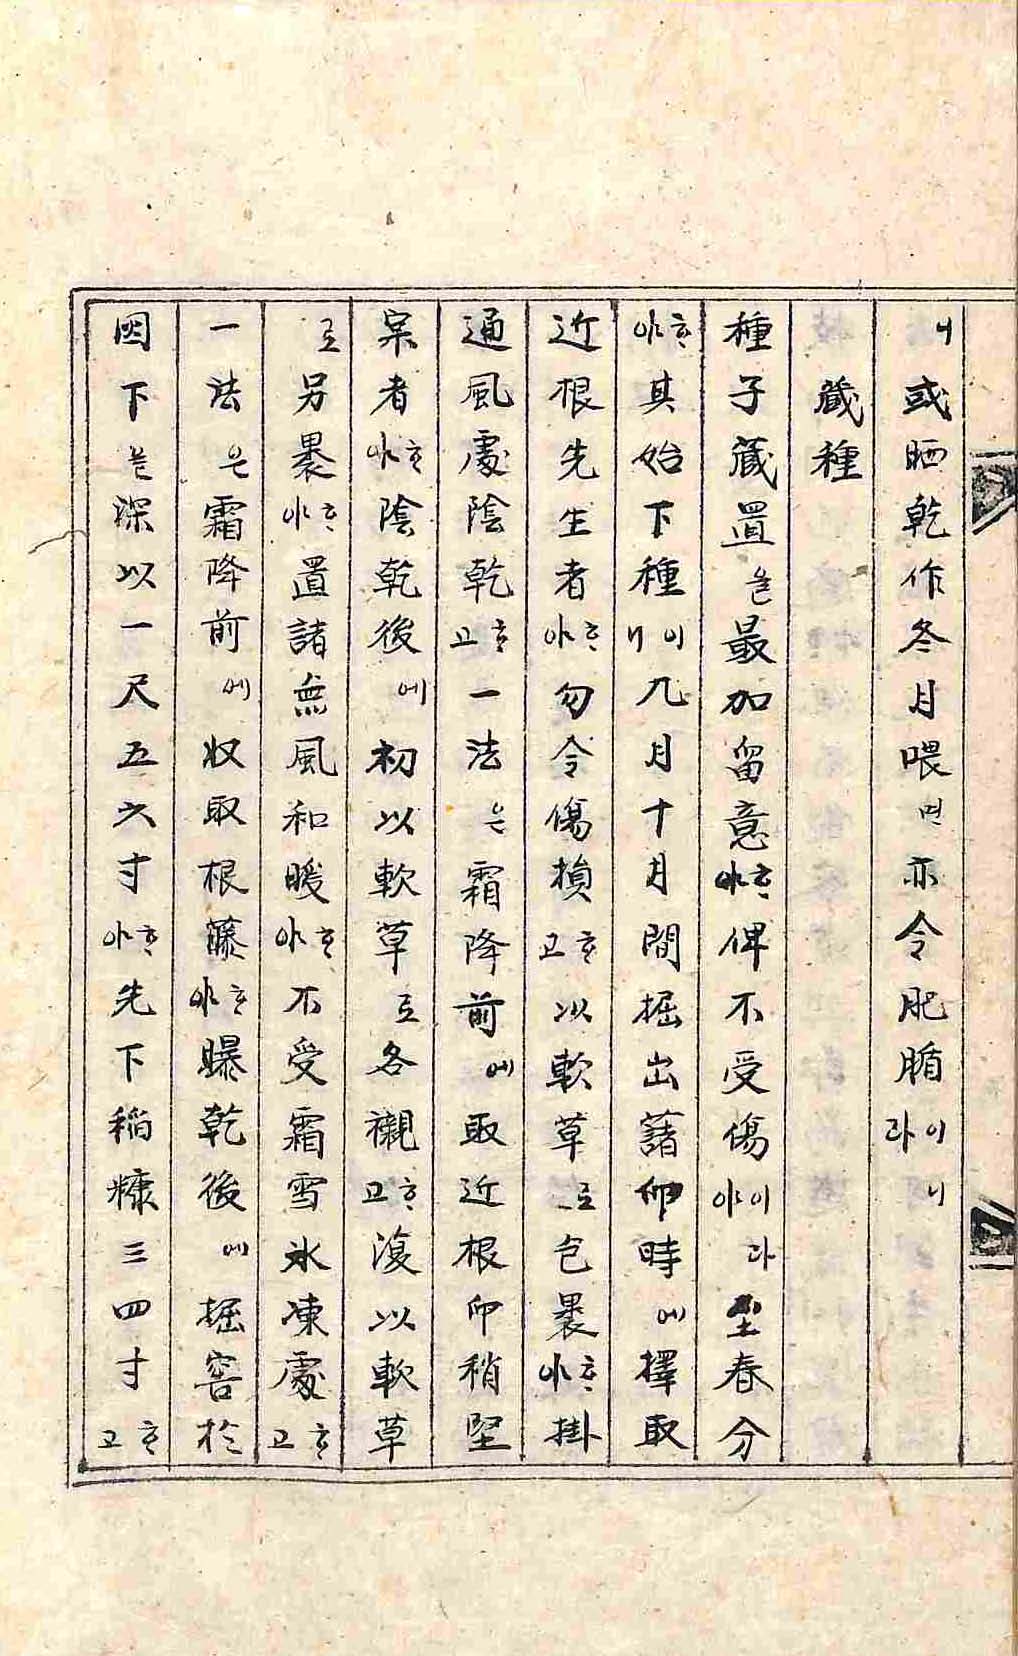 니或晒乾作冬月喂면亦令肥腯이라니
藏種
種子藏置을最加留意ᄒᆞ야俾不受傷이야라至春分
ᄒᆞ야其始下種이니九月十月間掘出藷卵時에擇取
近根先生者ᄒᆞ야勿令傷損ᄒᆞ고以軟草로包裹ᄒᆞ야掛
通風處陰乾ᄒᆞ고一法은霜降前에取近根卵稍堅
宲者ᄒᆞ야陰乾後에初以軟草로各襯ᄒᆞ고復以軟草
로另裹ᄒᆞ야置諸無風和暖ᄒᆞ야不受霜雪氷凍處ᄒᆞ고
一法은霜降前에收取根藤ᄒᆞ야曝乾後에掘窖於
囷下는深以一尺五六寸ᄒᆞ야先下稻糠三四寸ᄒᆞ고